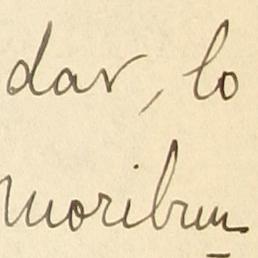 dar, lo
moribun